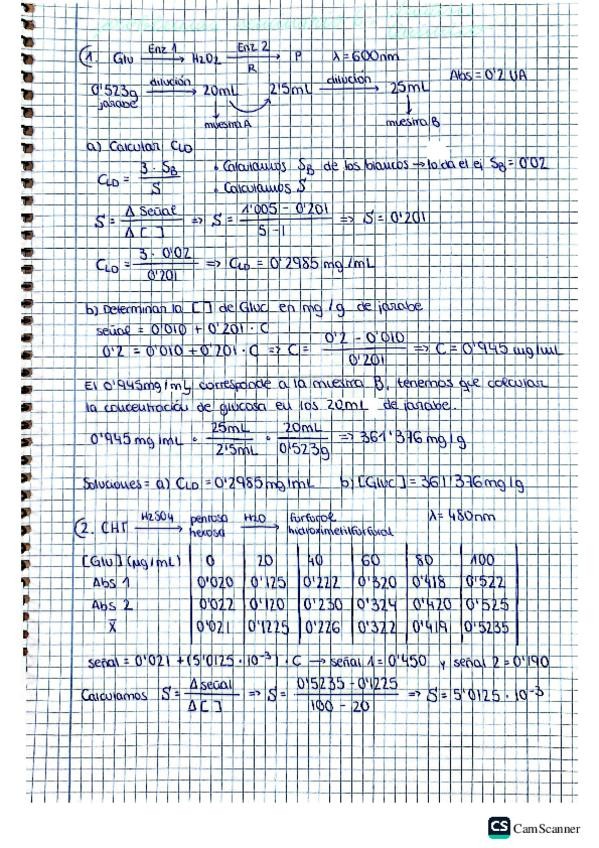 1. Glu Enz 1 → H2O2 Enz 2 R → P λ = 600nm
0'523g jarabe dilución → 20mL 2'5mL dilución → 25mL Abs = 0'2 UA
muestra A muestra B
a) Calcular CLD
CLD = 3 · SB / S • Calculamos SB de los blancos → lo da el ej SB = 0'02
• Calculamos S
S = Δ Señal / Δ [ ] ⇒ S = 1'005 - 0'201 / 5 - 1 ⇒ S = 0'201
CLD = 3 · 0'02 / 0'201 ⇒ CLD = 0'2985 mg/mL
b) Determinar la [ ] de Gluc en mg/g de jarabe
señal = 0'010 + 0'201 · C
0'2 = 0'010 + 0'201 · C ⇒ C = 0'2 - 0'010 / 0'201 ⇒ C = 0'945 mg/mL
El 0'945mg/mL corresponde a la muestra B, tenemos que calcular
la concentración de glucosa en los 20mL de jarabe.
0'945 mg/mL · 25mL / 2'5mL · 20mL / 0'523g ⇒ 361'376 mg/g
Soluciones = a) CLD = 0'2985 mg/mL b) [Gluc] = 361'376 mg/g
2. CHT H2SO4 → pentosa hexosa H2O → furfural hidroximetilfurfural λ = 480nm
[Glu] (μg/mL) 0 20 40 60 80 100
Abs 1 0'020 0'125 0'222 0'320 0'418 0'522
Abs 2 0'022 0'120 0'230 0'324 0'420 0'525
X̄ 0'021 0'1225 0'226 0'322 0'419 0'5235
señal = 0'021 + (5'0125 · 10⁻³) · C → señal 1 = 0'450 y señal 2 = 0'190
Calculamos S = Δ señal / Δ [ ] ⇒ S = 0'5235 - 0'1225 / 100 - 20 ⇒ S = 5'0125 · 10⁻³
CS CamScanner